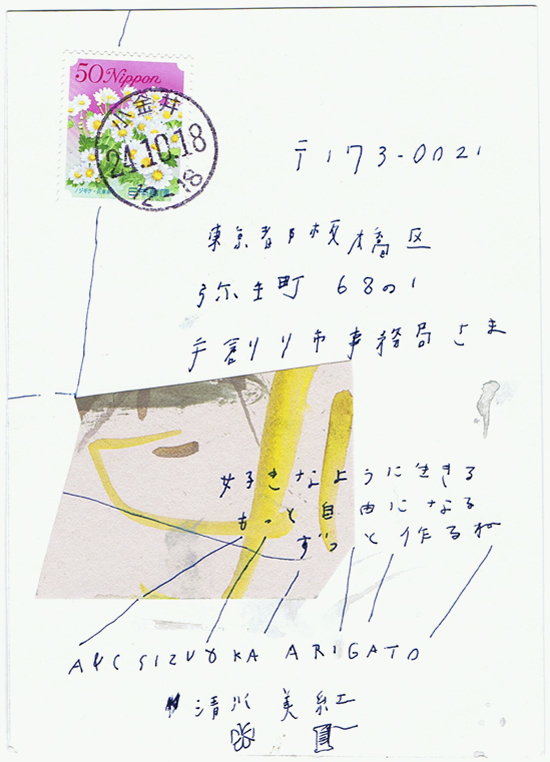 50 Nippon
小金井
24.10.18
12-18
〒173-0021
東京都板橋区
弥生町 68の1
手創り市事務局さま
好きなように生きる
もっと自由になる
ずっと作るね
A&C SIZUOKA ARIGATO
清川 美紅